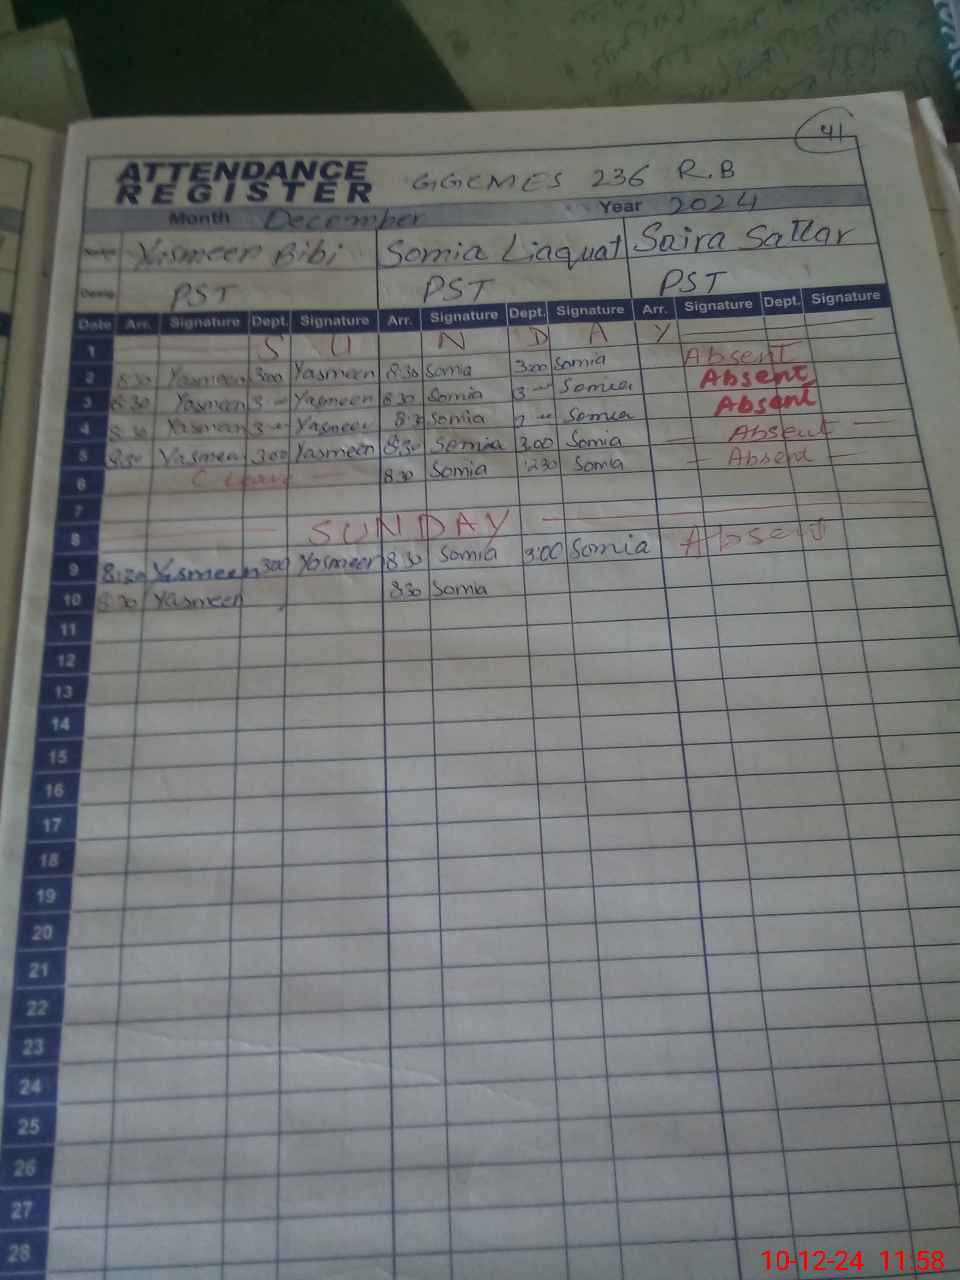 41
ATTENDANCE
REGISTER GGCMES 236 R.B
Month December Year 2024
Name Yasmeen Bibi Somia Liaquat Saira Sattar
Desig PST PST PST
Date Arr. Signature Dept. Signature Arr. Signature Dept. Signature Arr. Signature Dept. Signature
1 S U N D A Y
2 8:30 Yasmeen 300 Yasmeen 8:30 Somia 3:00 Somia Absent
3 8:30 Yasmeen 3 Yasmeen 8:30 Somia 3 Somia Absent
4 8:30 Yasmeen 3 Yasmeen 8:30 Somia Somia Absent
5 8:30 Yasmeen 300 Yasmeen 8:30 Somia 3.00 Somia Absent
6 C Leave 830 Somia 1230 Somia Absent
7
8 SUNDAY
9 8:30 Yasmeen 300 Yasmeen 8:30 Somia 3:00 Somia Absent
10 8:30 Yasmeen 830 Somia
11
12
13
14
15
16
17
18
19
20
21
22
23
24
25
26
27
28
10-12-24 11:58